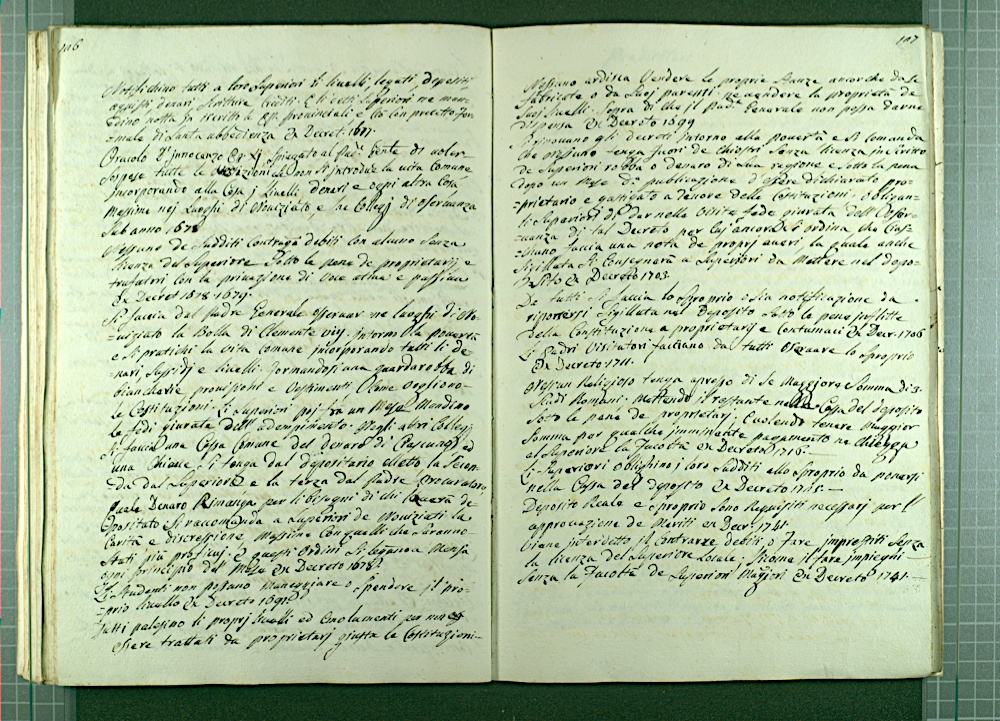 106
Notifichino tutti a loro Superiori li livelli, legati, depositi
acquisti denari, scritture Crediti. E li detti Superiori ne man-
nota in scritto li PP. Provinciali e ciò con precetto For-
-male di santa obbedienza Ex Decret. 1677.
Oracolo d'Innocenzo XI spiegato al Pad. Gente di voler
sospese tutte le si introduca la vita comune
incorporando alla Cassa i livelli, denari e ogni altra cosa
Massime nei luoghi di Noviziato, e ne Collegi di osservanza
sub anno 1678
Nessuno de sudditi contragga debiti con alcuno senza
licenza del Superiore sotto le pene de proprietarj e
trasgressori con la privazione di voce attiva e passiva
Ex Decret 1678. 1679.
Si faccia dal Padre Generale osservar ne luoghi di No-
-viziato la Bolla di Clemente viij. intorno la povertà
e si pratichi la vita comune incorporando tutti li de-
-nari, sussidj e livelli. Formandosi una guardarobba di
biancherie provisioni e vestimenti Come vogliono
le Costituzioni. li superiori poi frà un Mese Mandino
le fedi giurate dell'adempimento. Negli altri Collegj
si faccia una Cassa Comune del denaro di ciascuno ed
una Chiave si tenga dal depositario eletto la secon-
da dal superiore e la terza dal Padre Procuratore,
quale Denaro Rimanga per li bisogni di chi l'averà de-
positato si raccomanda a superiori de Noviziati la
Carità e discrezione massime con quelli che saranno
stati più proficui. E questi ordini si leggano a Mensa
ogni principio del Mese Ex Decreto 1678.
Li studenti non possano maneggiare o spendere il pro-
-prio livello Ex Decreto 1691.
Tutti palesino li proprj livelli ed emolumenti per non
essere trattati da proprietarj giusta le Costituzioni
107
Nessuno ardisca Vendere le proprie stanze ancorche da se
fabricate o da suoi parenti ne vendere la proprietà de
suoi livelli. Sopra di che il Pad. Generale non possa darne
dispensa Ex Decreto 1699
Si rinovano gli decreti intorno alla povertà e si comanda
che nessuno tenga fuori de chiostri senza licenza in scritto
de Superiori robba o denaro di sua ragione e sotto la pena
dopo un Mese da publicazione d'essere dichiarato pro-
-prietario e gastigato a tenore delle Costituzioni. obligan-
li Superiori di dar nella visita fede giurata dell'osser-
-vanza di tal Decreto per cui ancora si ordina che cias-
-chuno faccia una nota de proprj averi la quale anche
sigillata si consegnerà a superiori da Mettere nel depo-
-sito Ex Decreto 1703.
Da tutti si faccia lo sproprio o sia notificazione da
riponersi sigillata nel Deposito sotto le pene prescritte
dalla Constituzione a proprietarj e contumaci Ex Decr. 1706
Li Padri Visitatori facciano da tutti osservare lo sproprio
Ex Decreto 1711.
Nessun Religioso tenga apresso di se Maggiore somma di 3.
scudi Romani. Mettendo il restante nella Cassa del deposito
sotto le pene de proprietarj. E volendo tenere Maggior
somma per qualche imminente pagamento ne chiegga
al Superiore la Facoltà Ex Decreto 1716.
Li Superiori obblighino i loro sudditi allo sproprio da ponersi
nella Cassa del deposito Ex Decreto 1725.
Deposito Reale e sproprio sono Requisiti necessarj per l'
approvazione de Meriti Ex Decr. 1741.
Viene interdetto il Contrarre debiti o fare imprestiti senza
la licenza del Superiore locale siccome il fare impieghi
senza la Facoltà de Superiori Maggiori Ex Decreto 1741.